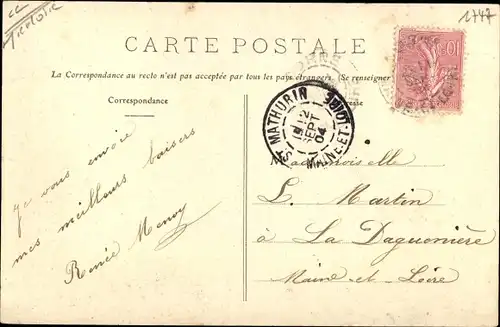 1747
CARTE POSTALE
La Correspondance au recto n'est pas acceptée par tous les pays étrangers. (Se renseigner
Correspondance
ST MATHURIN
12
SEPT
04
MAINE-ET-LOIRE
Je vous envoie
mes meilleurs baisers
Renée Menoy
Mademoiselle
L. Martin
à La Daguenière
Maine et Loire